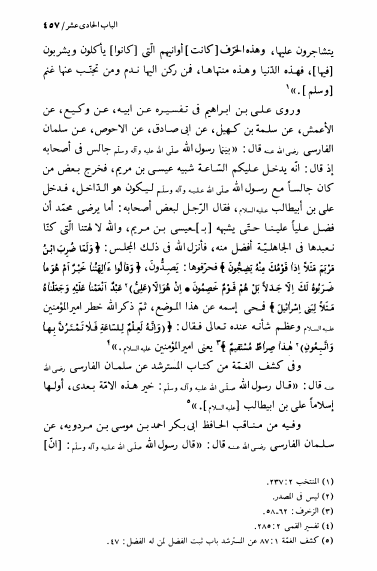 الباب الحادى عشر / ٤٥٧
يتشاجرون عليها، وهذه الخزف [كانت] أوانيهم الّتي [كانوا] يأكلون ويشربون
[فيها]، فهذه الدّنيا وهذه منتهاها، فمن ركن اليها ندم ومن تجنّب عنها غنم
[وسلم].»١
وروى علـى بـن ابراهيم فى تـفسيـره عن ابيـه، عن وكيـع، عن
الأعمش، عن سلمـة بن كـهيل، عن ابى صادق، عن الاحوص، عن سلمان
الفارسى رضى الله عنه قال: «بينما رسول الله صلى الله عليه وآله وسلم جالس فى أصحابه
إذ قال: انّه يدخل عليكم السّاعـة شبيه عيسى بن مريم، فخرج بعض من
كان جالساً مع رسول الله صلى الله عليه وآله وسلم ليكون هو الدّاخل، فدخل
على بن أبيطالب عليه السلام، فقال الرّجل لبعض أصحابه: أما يرضى محمّد أن
فضل علياً علينا حتّى يشبهه [بـ]عيسى بن مريم، والله لآلهتنا الّتي كنّا
نعبدها فى الجاهليّة أفضل منه، فأنزل الله فى ذلك المجلس: ﴿وَلَمّا ضُرِبَ ابْنُ
مَرْيَمَ مَثَلاً إِذا قَوْمُكَ مِنْهُ يَضِجُّونَ﴾ فحرّفوها: يَصِدُّونَ، ﴿وَقالُوا ءَالِهَتُنا خَيْرٌ أَمْ هُوَ ما
ضَرَبُوهُ لَكَ إِلّا جَدَلاً بَلْ هُمْ قَوْمٌ خَصِمُونَ • إِنْ هُوَ إلّا (عَلِيٌّ)٢ عَبْدٌ أَنْعَمْنا عَلَيْهِ وَجَعَلْناهُ
مَثَلاً لِبَنِى إِسْرائيلَ﴾ فـمحى إسمه عن هذا المـوضع، ثمّ ذكر الله خطر اميرالمؤمنين
عليه السلام وعظم شأنه عنده تعالى فـقال: ﴿وَإِنَّهُ لَعِلْمٌ لِلسّاعَةِ فَلا تَمْتَرُنَّ بِها
وَاتَّبِعُونِ هٰذا صِراطٌ مُسْتَقِيمٌ﴾٣ يعنى اميرالمؤمنين عليه السلام.»٤
وفى كشف الغمّة من كتاب المسترشد عن سلمان الفارسى رضى الله
عنه قال: «قـال رسول الله صلى الله عليه وآله وسلم: خير هذه الامّة بعدى، أولـها
إسلاماً على بن ابيطالب [عليه السلام].»٥
وفـيـه من مناقـب الحافـظ ابى بكر احمد بن موسى بن مردويه، عن
سـلـمان الفـارسى رضى الله عنه قال: «قال رسول الله صلى الله عليه وآله وسلم: [انّ]
(١) المنتخب ٢: ٢٣٧.
(٢) ليس فى المصدر.
(٣) الزخرف: ٦٢-٥٨.
(٤) تفسير القمى ٢: ٢٨٥.
(٥) كشف الغمّة ١: ٨٧ عن المسترشد باب ثبت الفضل لمن له الفضل: ٤٧.